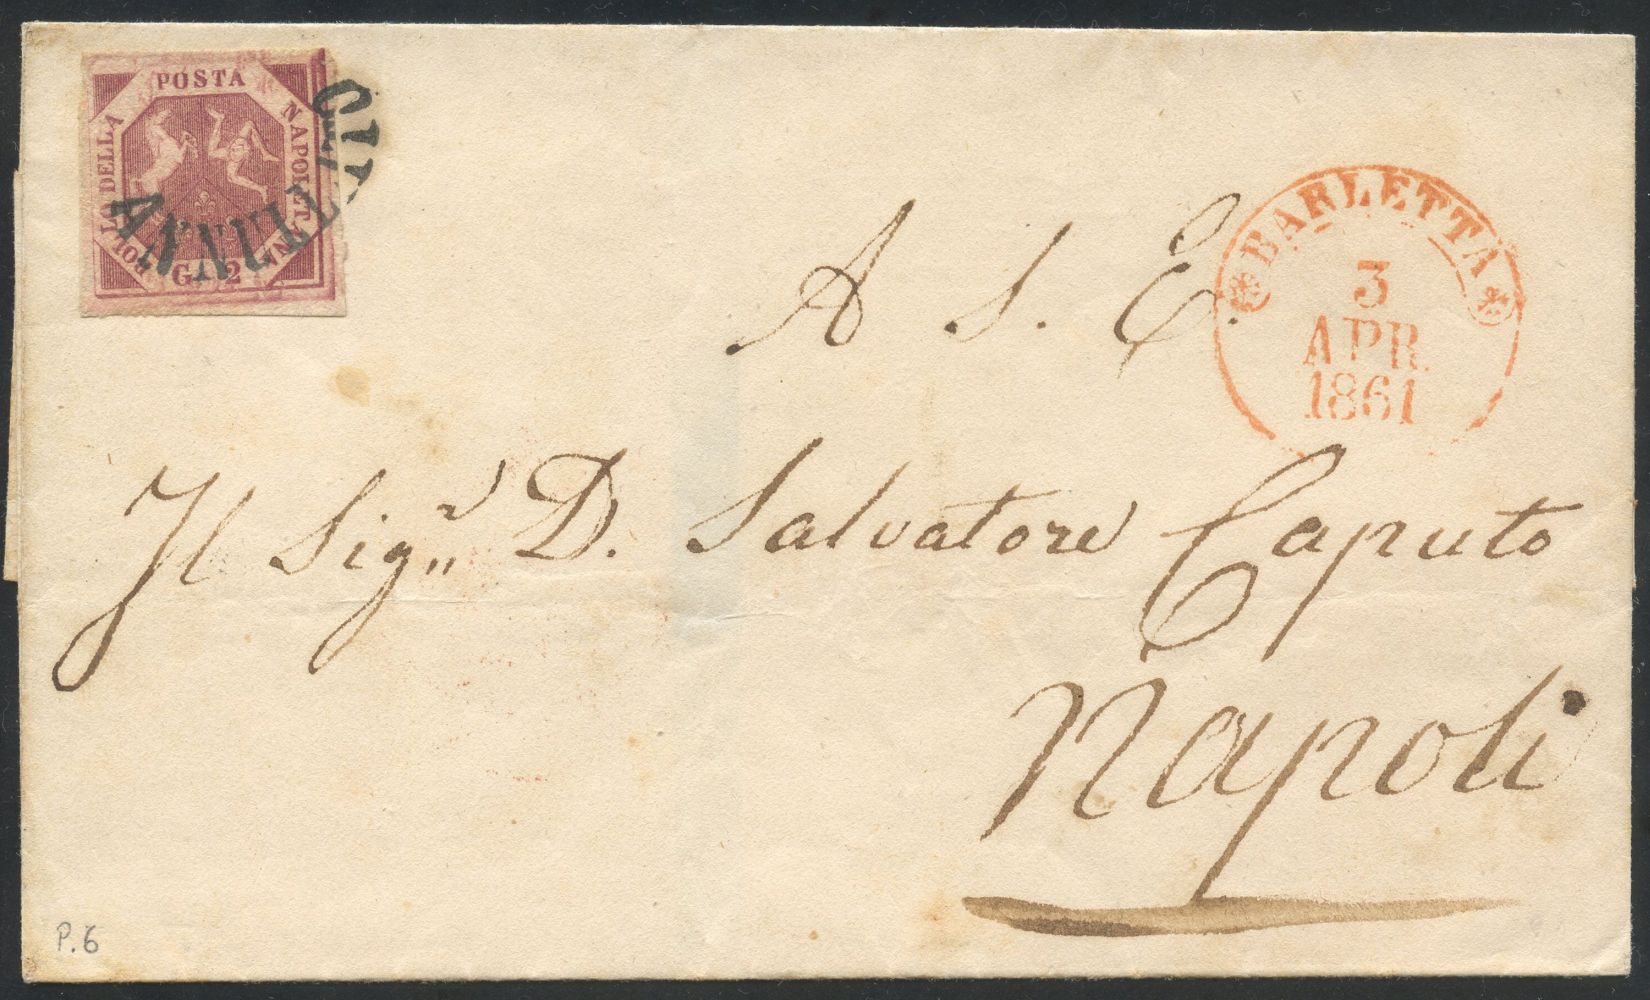 POSTA
NAPOLETANA
BOLLO DELLA
G. 2
ANNULLATO
BARLETTA
3
APR.
1861
A S. E.
Il Sigr D. Salvatore Caputo
Napoli
P.6